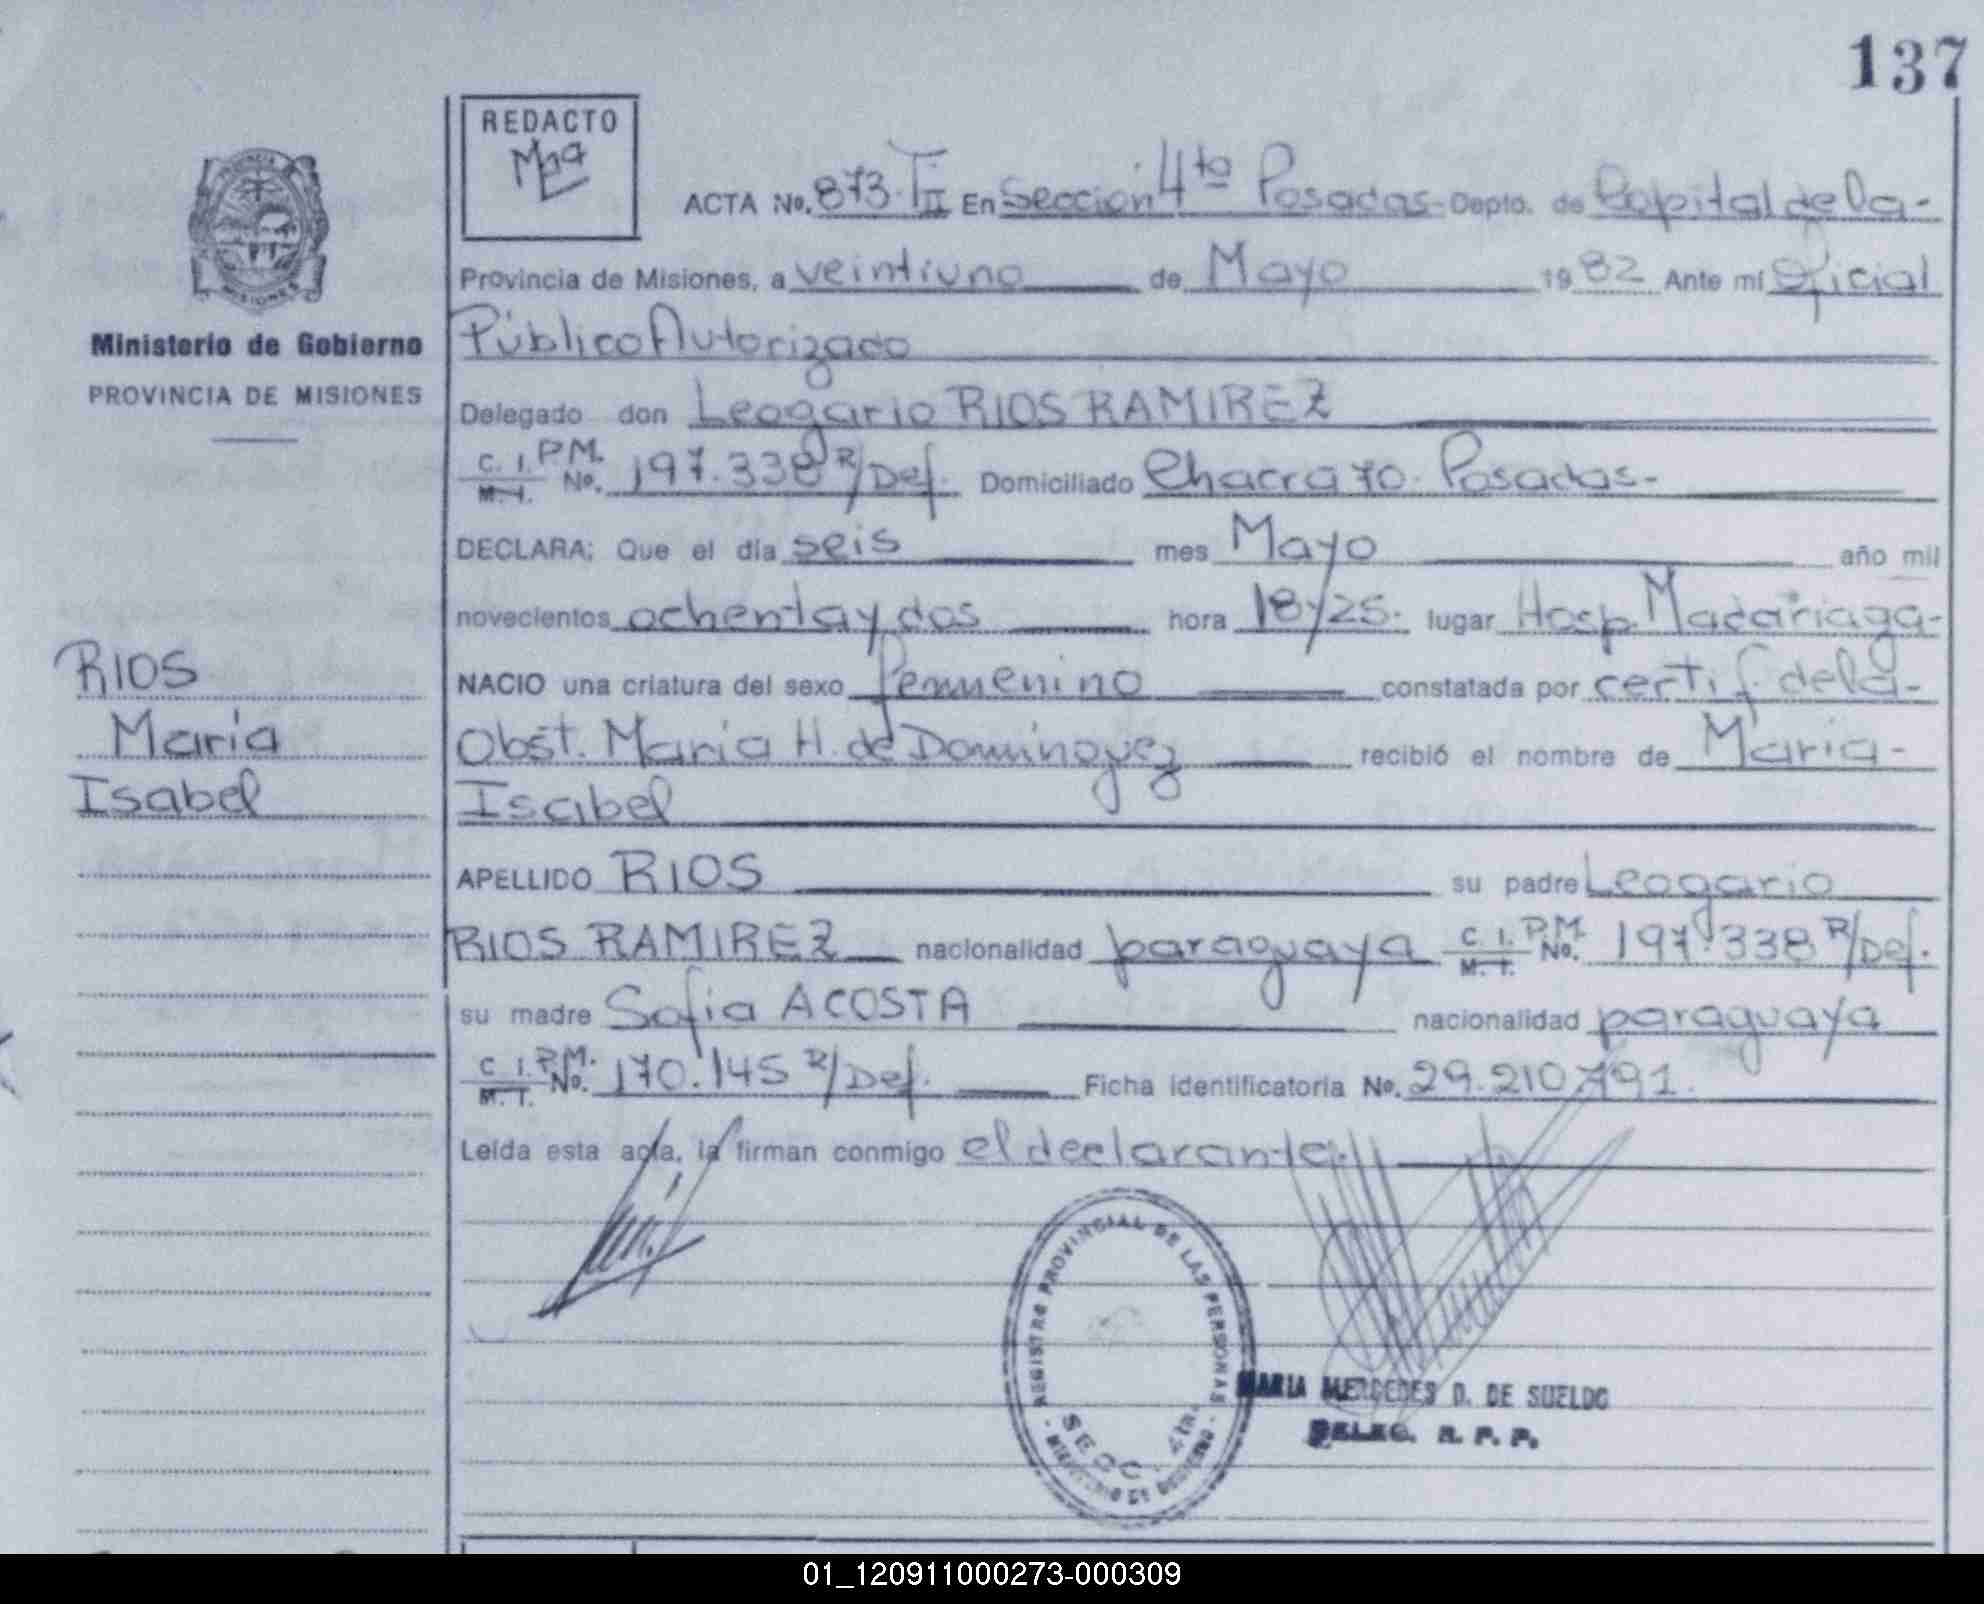 137
REDACTO
Mha
ACTA No. 873. T II En Sección 4ta Posadas - Depto. de Capital de la -
Provincia de Misiones, a veintiuno de Mayo 1982 Ante mí Oficial
Ministerio de Gobierno
PROVINCIA DE MISIONES
Público Autorizado
Delegado don Leogario RIOS RAMIREZ
C. I. P.M.
M. I. No. 197.338 R/Def. Domiciliado Chacra 70. Posadas -
DECLARA: Que el día seis mes Mayo año mil
novecientos ochenta y dos hora 18y/25. lugar Hosp. Madariaga -
RIOS
María
Isabel
NACIO una criatura del sexo femenino constatada por certif. de la -
Obst. Maria H. de Dominguez recibió el nombre de María -
Isabel
APELLIDO RIOS su padre Leogario
RIOS RAMIREZ nacionalidad paraguaya C. I. P.M. M. I. No. 197.338 R/Def.
su madre Sofia ACOSTA nacionalidad paraguaya
C. I. P.M. M. I. No. 170.145 R/Def. Ficha identificatoria No. 29.210.791.
Leída esta acta, la firman conmigo el declarante.
REGISTRO PROVINCIAL DE LAS PERSONAS
SECC. 4ta.
- MINISTERIO DE GOBIERNO -
MARIA MERCEDES D. DE SUELDO
DELEG. R. P. P.
01_120911000273-000309